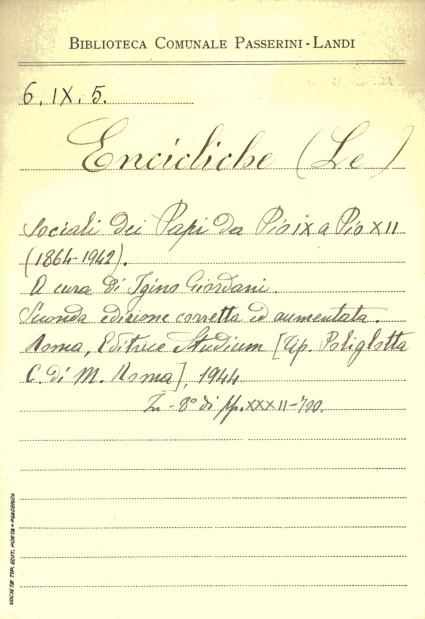 BIBLIOTECA COMUNALE PASSERINI-LANDI
6. IX. 5.
Encicliche (Le)
sociali dei Papi da Pio IX a Pio XII
(1864-1942).
A cura di Igino Giordani
Seconda edizione corretta ed aumentata.
Roma, Editrice Studium [Tip. Poliglotta
C. di M. Roma], 1944
In-8° di pp. XXXII-700.
SOCIETÀ TIP. EDIT. PORTA - PIACENZA